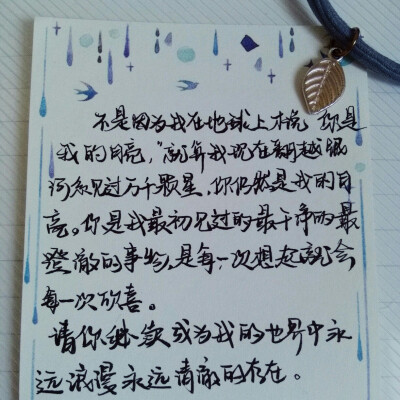 不是因为我在地球上才说 你是
我的月亮,"就算我现在翻越银
河系见过万千颗星,你仍然是我的月
亮。你是我最初见过的最干净的最
澄澈的事物,是每一次想起就会
每一次欣喜。
请你继续成为我的世界中永
远浪漫永远清澈的存在。